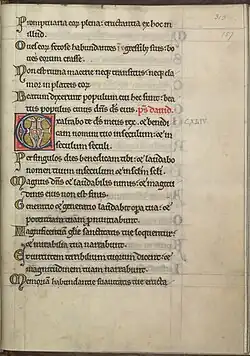 Promptuaria eor plena: eructantia ex hoc in
illud.
Oues eor fetose habundantes in gressib; suis: bo
ues eorum crasse.
Non est ruina macerie neq; transitus: neq; cla
mor in plateis eor.
Beatum dixerunt populum cui hec sunt: bea
tus populus cuius dns ds eius. ps dauid.
Exaltabo te ds meus rex: et benedi
cam nomini tuo in seculum: et in
seculum seculi.
Per singulos dies benedicam tibi: et laudabo
nomen tuum in seculum et in sclm scli.
Magnus dns et laudabilis nimis: et magnitu
dinis eius non est finis.
Generatio et generatio laudabit opa tua: et
potentiam tuam pnuntiabunt.
Magnificentiam glie sanctitatis tue loquentur:
et mirabilia tua narrabunt.
Et uirtutem terribilium tuorum dicent: et
magnitudinem tuam narrabunt.
Memoriam habundantie suauitatis tue eructa